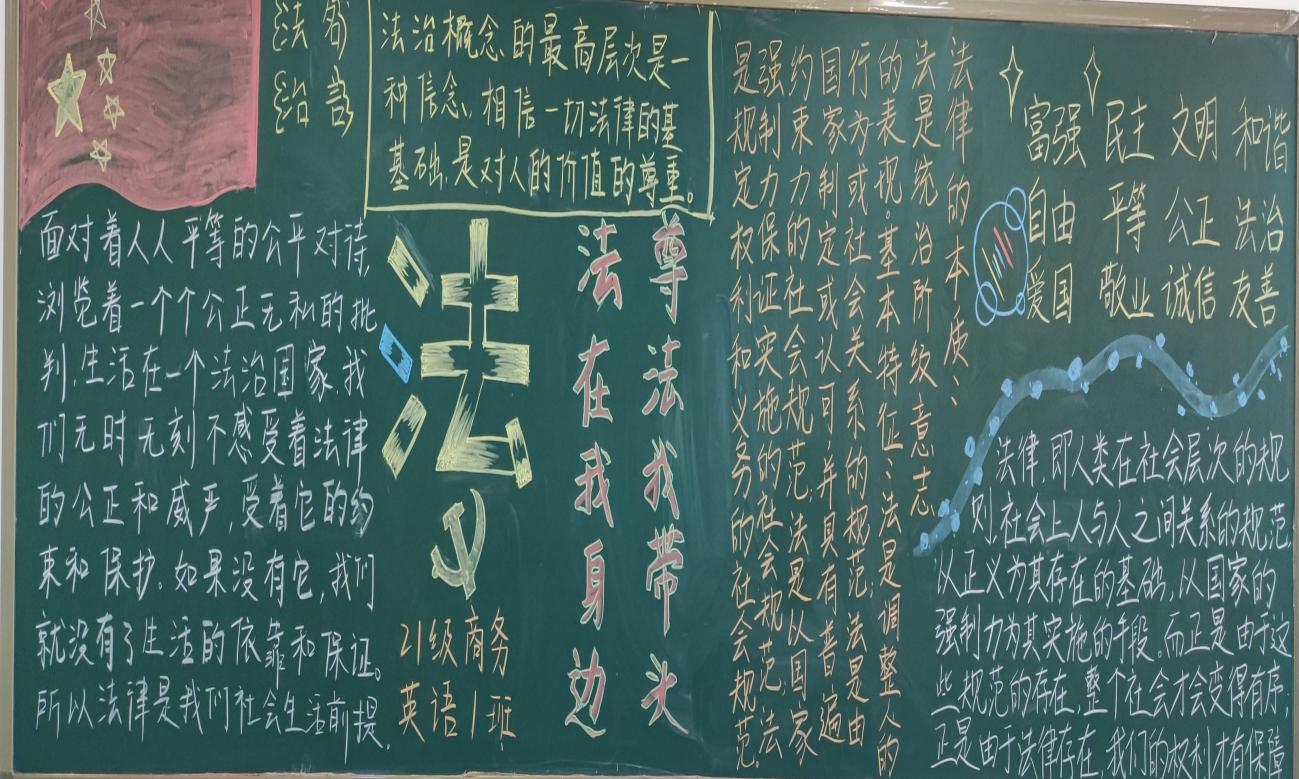 法治
名言
法治概念的最高层次是一
种信念,相信一切法律的基
基础,是对人的价值的尊重。
面对着人人平等的公平对待,
浏览着一个个公正无私的批
判,生活在一个法治国家,我
们无时无刻不感受着法律
的公正和威严,受着它的约
束和保护。如果没有它,我们
就没有了生活的依靠和保证。
所以法律是我们社会生活前提.
法
21级商务
英语1班
尊法我带头
法在我身边
法律的本质:
法是统治阶级意志
的表现。基本特征:法是调整人的
行为或社会关系的规范;法是由
国家制定或认可,并具有普遍
约束力的社会规范;法是以国家
强制力保证实施的社会规范;法
是规定权利和义务的社会规范.
富强 民主 文明 和谐
自由 平等 公正 法治
爱国 敬业 诚信 友善
法律,即人类在社会层次的规
则,社会上人与人之间关系的规范,
以正义为其存在的基础,从国家的
强制力为其实施的手段。而正是由于这
些规范的存在,整个社会才会变得有序,
正是由于法律存在,我们的权利才有保障